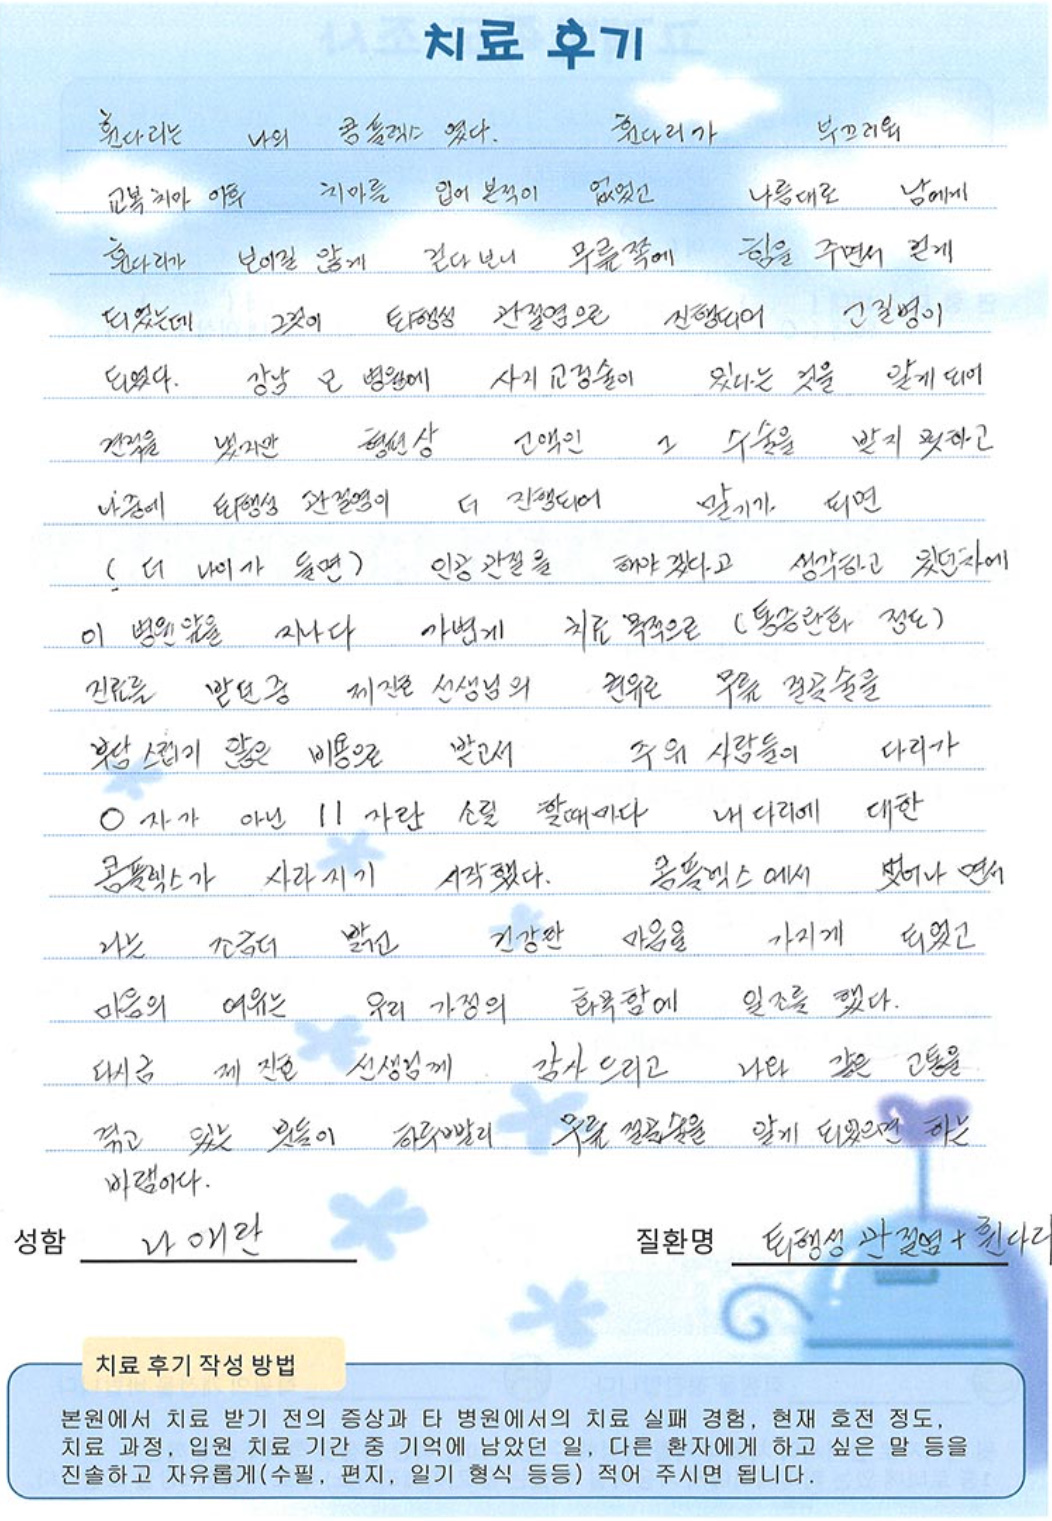 치료 후기
휜다리는 나의 콤플렉스 였다. 휜다리가 부끄러워
교복치마 이후 치마를 입어 본적이 없었고 나름대로 남에게
휜다리가 보이질 않게 걷다보니 무릎쪽에 힘을 주면서 걷게
되었는데 그것이 퇴행성 관절염으로 진행되어 고질병이
되었다. 강남 모 병원에 사지교정술이 있다는 것을 알게 되어
견적을 냈지만 형편상 고액인 그 수술을 받지 못하고
나중에 퇴행성 관절염이 더 진행되어 말기가 되면
( 더 나이가 들면) 인공관절을 해야겠다고 생각하고 있던차에
이 병원앞을 지나다 가볍게 치료 목적으로 (통증완화 정도)
진료를 받던중 제진호 선생님의 권유로 무릎 절골술을
부담스럽지 않은 비용으로 받고서 주위 사람들이 다리가
O 자가 아닌 11 자란 소릴 할때마다 내다리에 대한
콤플렉스가 사라지기 시작했다. 콤플렉스에서 벗어나면서
나는 조금더 밝고 건강한 마음을 가지게 되었고
마음의 여유는 우리 가정의 화목함에 일조를 했다.
다시금 제진호 선생님께 감사드리고 나와 같은 고통을
겪고 있는 분들이 하루빨리 무릎 절골술을 알게 되었으면 하는
바램이다.
성함 나애란 질환명 퇴행성 관절염 + 휜다리
치료 후기 작성 방법
본원에서 치료 받기 전의 증상과 타 병원에서의 치료 실패 경험, 현재 호전 정도,
치료 과정, 입원 치료 기간 중 기억에 남았던 일, 다른 환자에게 하고 싶은 말 등을
진솔하고 자유롭게(수필, 편지, 일기 형식 등등) 적어 주시면 됩니다.